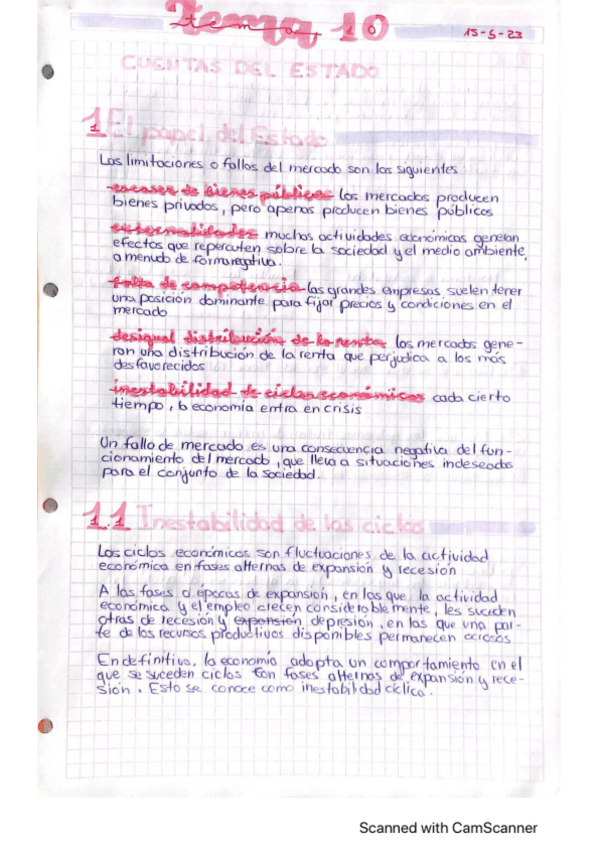 Tema 10
tema
15-5-23
CUENTAS DEL ESTADO
1 El papel del Estado
Las limitaciones o fallos del mercado son las siguientes
escasez de bienes públicos los mercados producen
bienes privados, pero apenas producen bienes públicos
externalidades muchas actividades económicas generan
efectos que repercuten sobre la sociedad y el medio ambiente,
a menudo de forma negativa.
falta de competencia las grandes empresas suelen tener
una posición dominante para fijar precios y condiciones en el
mercado
desigual distribución de la renta los mercados gene-
ran una distribución de la renta que perjudica a los más
desfavorecidos
inestabilidad de ciclos económicos cada cierto
tiempo, la economía entra en crisis
Un fallo de mercado es una consecuencia negativa del fun-
cionamiento del mercado, que lleva a situaciones indeseadas
para el conjunto de la sociedad.
1.1 Inestabilidad de los ciclos
Los ciclos económicos son fluctuaciones de la actividad
económica en fases alternas de expansión y recesión
A las fases o épocas de expansión, en las que la actividad
económica y el empleo crecen considerablemente, les suceden
otras de recesión y expansión depresión, en las que una par-
te de los recursos productivos disponibles permanecen ociosos
En definitiva, la economía adopta un comportamiento en el
que se suceden ciclos con fases alternas de expansión y rece-
sión. Esto se conoce como inestabilidad cíclica.
Scanned with CamScanner